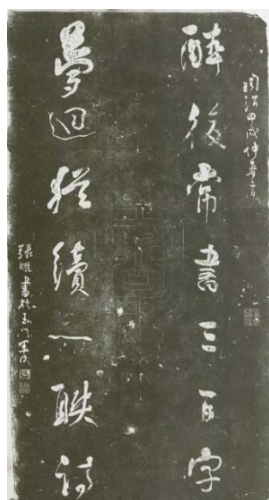 同治甲戌仲月
醉後常書三百字
夢迴猶續一聯詩
張曜書於玉門軍次